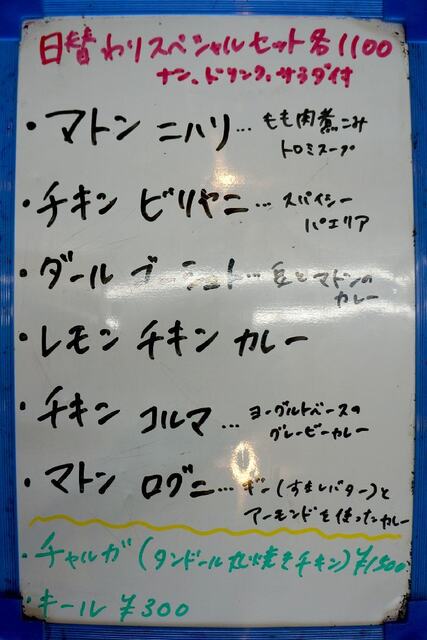 日替わりスペシャルセット各1100
ナン、ドリンク、サラダ付
・マトン ニハリ… もも肉煮こみ
トロミスープ
・チキン ビリヤニ… スパイシー
パエリア
・ダール ゴーシュト… 豆とマトンの
カレー
・レモン チキン カレー
・チキン コルマ… ヨーグルトベースの
グレービーカレー
・マトン ログニ… ギー(すましバター)と
アーモンドを使ったカレー
・チャルガ(タンドール丸焼きチキン)¥1500
・キール ¥300